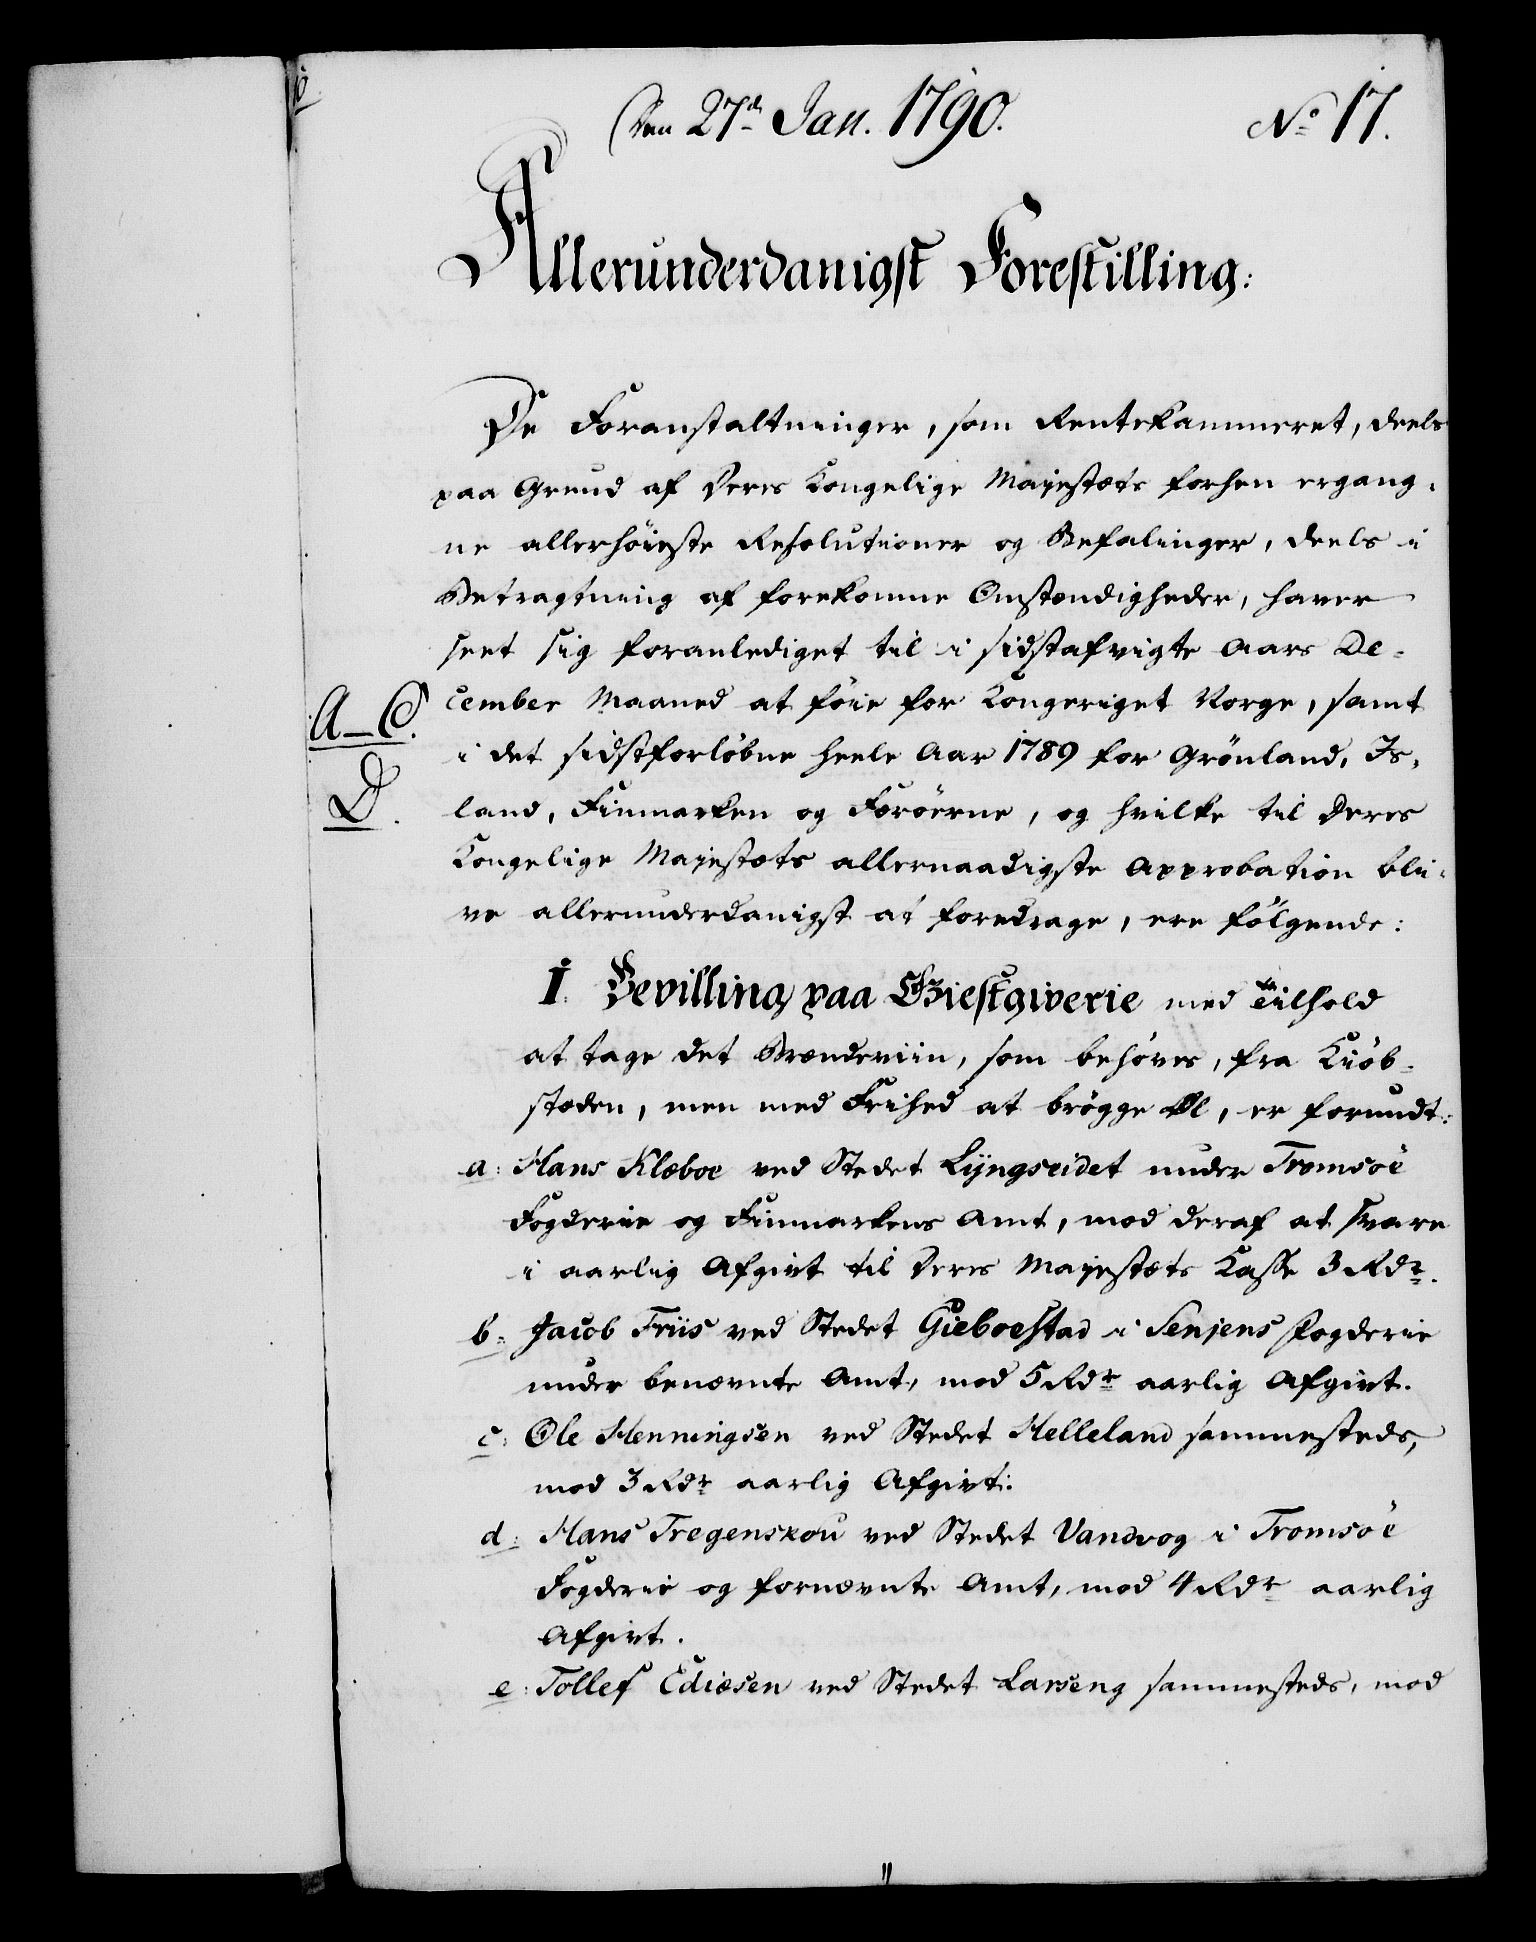 Den 27d Jan. 1790.
No 17.
Allerunderdanigst Forestilling:
De Foranstaltninger, som Rentekammeret, deels
paa Grund af Deres Kongelige Majestæts forhen ergang-
ne allerhöieste Resolutioner og Befalinger, deels i
Betragtning af forekomne Omstændigheder, haver
seet sig foranlediget til i sidstafvigte Aars De-
A-C.
cember Maaned at föie for Kongeriget Norge, samt
i det sidstforløbne heele Aar 1789 for Grönland, Is-
D.
land, Finmarken og Færöerne, og hvilke til Deres
Kongelige Majestæts allernaadigste Approbation bli-
ve allerunderdanigst at foredrage, ere fölgende:
I. Bevilling paa Giestgiverie med Tilhold
at tage det Brændeviin, som behöves, fra Kiöb-
stæden, men med Frihed at brögge Øl, er forundt:
a: Hans Klæboe ved Stedet Lyngseidet under Tromsöe
Fogderie og Finmarkens Amt, mod deraf at svare
i aarlig Afgivt til Deres Majestæts Kasse 3 Rdr.
b: Jacob Friis ved Stedet Gieboestad i Senjens Fogderie
under benævnte Amt, mod 5 Rdr aarlig Afgivt.
c: Ole Henningsen ved Stedet Helleland sammesteds,
mod 3 Rdr aarlig Afgivt:
d: Hans Tregenskou ved Stedet Vandvog i Tromsöe
Fogderie og fornævnte Amt, mod 4 Rdr aarlig
Afgivt.
e: Tollef Ediæsen ved Stedet Larseng sammesteds, mod